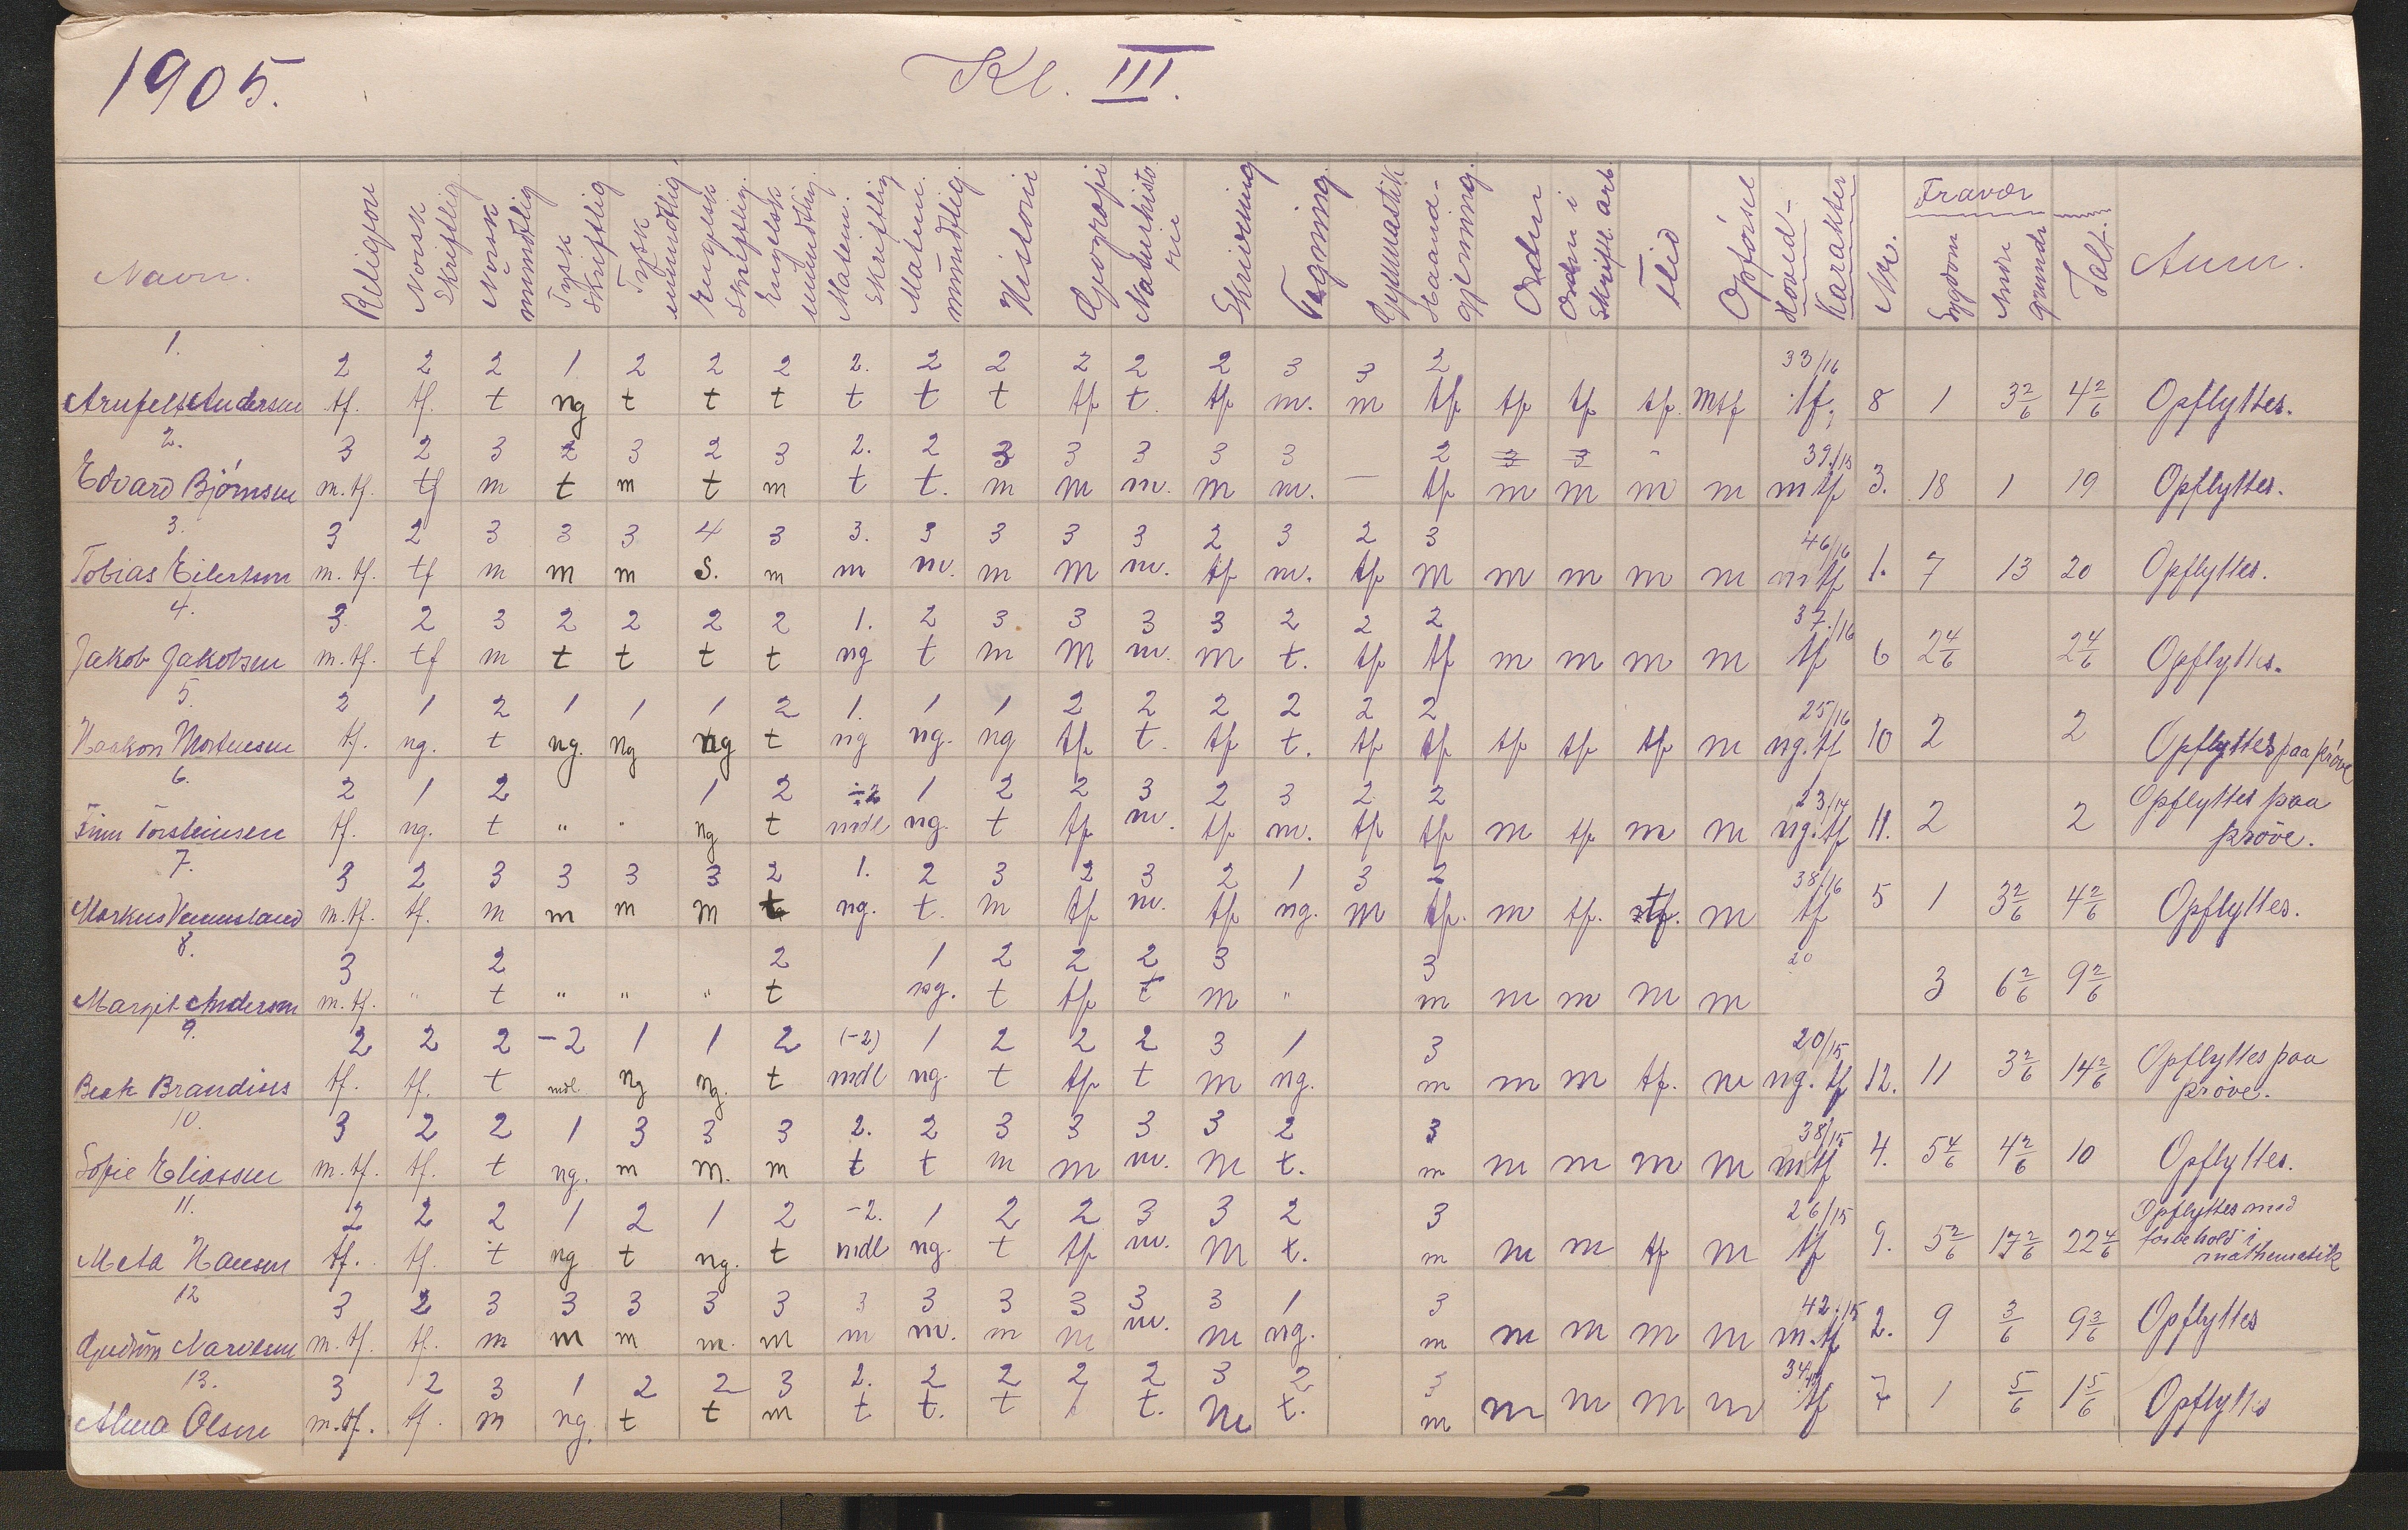 1905. Kl. III.
Navn. Religion Norsk Skriftlig Norsk mundtlig Tysk Skriftlig Tysk mundtlig Engelsk Skriftlig Engelsk mundtlig Matem. Skriftlig Matem. mundtlig Historie Geografi Naturhistorie Skrivning Tegning Gymnastik Haandgjerning Orden Orden i Skriftl. arb. Flid Opførsel Hoved-Karakter Nr. Fravær Sygdom Andre grunde Talt. Anm.
1. 2 2 2 1 2 2 2 2. 2 2 2 2 2 3 3 2 33/16
Andersen tf. tf. t ng t t t t t t tf t. tf m. m tf tf tf tf. mtf tf. 8 1 3 2/6 4 2/6 Opflyttes.
2. 3 2 3 2 3 2 3 2. 2 3 3 3 3 3 2 3 3 39/15
Edvard Bjørnsen m.tf. tf m t m t m t t. m m m. m m. — tf m m m m m tf 3. 18 1 19 Opflyttes.
3. 3 2 3 3 3 4 3 3. 3 3 3 3 2 3 2 3 46/16
Tobias Eilertsen m.tf. tf m m m s. m m m. m m m. tf m. tf m m m m m m tf 1. 7 13 20 Opflyttes.
4. 3 2 3 2 2 2 2 1. 2 3 3 3 3 2 2 2 37./16
Jakob Jakobsen m.tf. tf m t t t t ng t m m m. m t. tf tf m m m m tf 6 2 4/6 2 4/6 Opflyttes.
5. 2 1 2 1 1 1 2 1. 1 1 2 2 2 2 2 2 25/16
Haakon Mortensen tf. ng. t ng. ng ng t ng ng. ng tf t. tf t. tf tf tf tf tf m ng.tf 10 2 2 Opflyttes paa prøve
6. 2 1 2 1 2 ÷2 1 2 2 3 2 3 2 2 23/14
Finn Torsteinsen tf. ng. t " " ng t mdl ng. t tf m. tf m. tf tf m tf m m ng.tf 11. 2 2 Opflyttes paa prøve.
7. 3 2 3 3 3 3 2 1. 2 3 2 3 2 1 3 2 38/16
Markus Vennesland m.tf. tf. m m m m t ng. t. m tf m. tf ng. m tf. m tf. tf. m tf 5 1 3 2/6 4 2/6 Opflyttes.
8. 3 2 2 1 2 2 2 3 3 20
Margit Andersen m.tf. " t " " " t ng. t tf t m " m m m m m 3 6 2/6 9 2/6
9. 2 2 2 -2 1 1 2 (-2) 1 2 2 2 3 1 3 20/15
Brandius tf. tf. t mdl. ng ng. t mdl ng. t tf t m ng. m m m tf. m ng. tf 12. 11 3 2/6 14 2/6 Opflyttes paa prøve.
10. 3 2 2 1 3 3 3 2. 2 3 3 3 3 2 3 38/15
Sofie Eliassen m.tf. tf. t ng. m m. m t t m m m. m t. m m m m m mtf 4. 5 4/6 4 2/6 10 Opflyttes.
11. 2 2 2 1 2 1 2 -2. 1 2 2 3 3 2 3 26/15
Meta Hansen tf. tf. t ng t ng. t mdl ng. t tf m. m t. m m m tf m tf 9. 5 2/6 17 2/6 22 4/6 Opflyttes med forbehold i mathematik
12 3 2 3 3 3 3 3 3 3 3 3 3 3 1 3 42/15
Gudrun m.tf. tf. m m m m. m m m. m m m. m ng. m m m m m m.tf 2. 9 3/6 9 3/6 Opflyttes
13. 3 2 3 1 2 2 3 2. 2 2 2 2 3 2 3
Alma Olsen m.tf. tf. m ng. t t m t t. t t. m t. m m m m m tf 7 1 5/6 1 5/6 Opflyttes